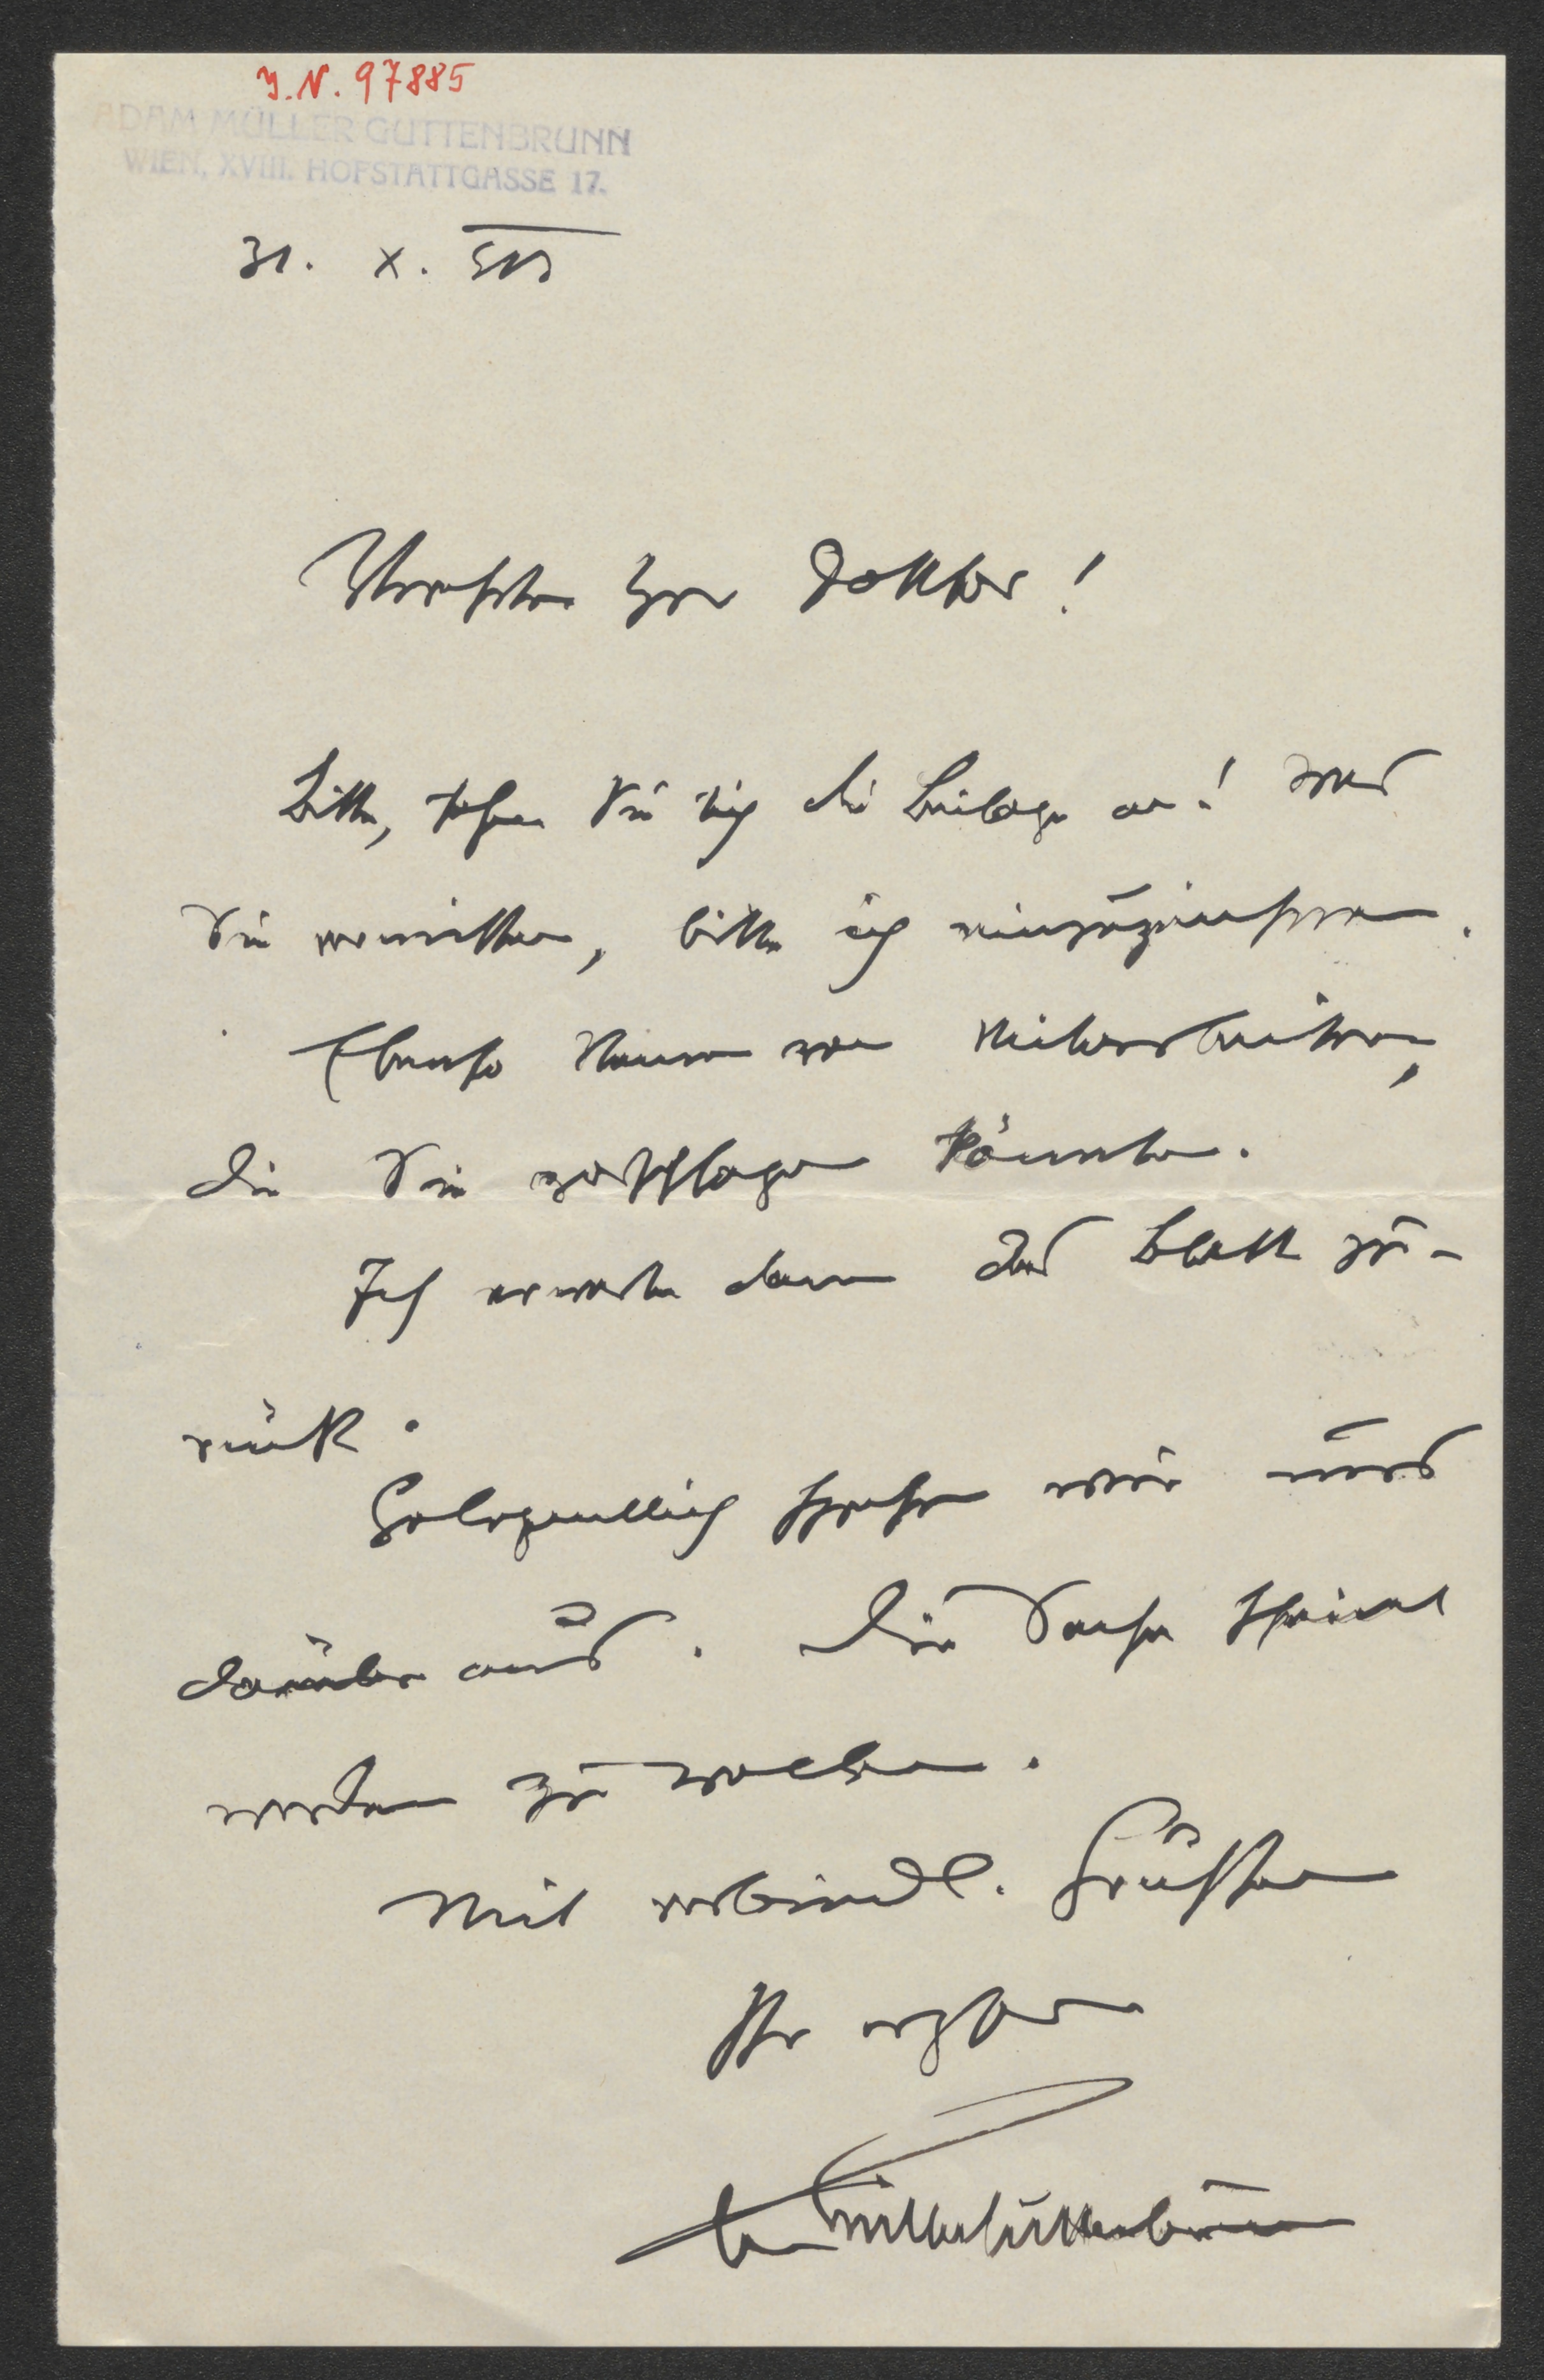 J.N. 97885
ADAM MÜLLER GUTTENBRUNN
WIEN, XVIII. HOFSTATTGASSE 17.
31. X.
Verehrter Herr Doktor!
Bitte, sehen Sie sich die Beilage an! Was
Sie vermissen, bitte ich einzuzeichnen.
Ebenso Namen von Mitarbeitern,
die Sie vorschlagen könnten.
Ich erwarte dann das Blatt zu-
rück.
Gelegentlich sprechen wir uns
darüber aus. Die Sache scheint
werden zu wollen.
Mit verbindl. Grüßen
Ihr ergebener
Müllerguttenbrunn